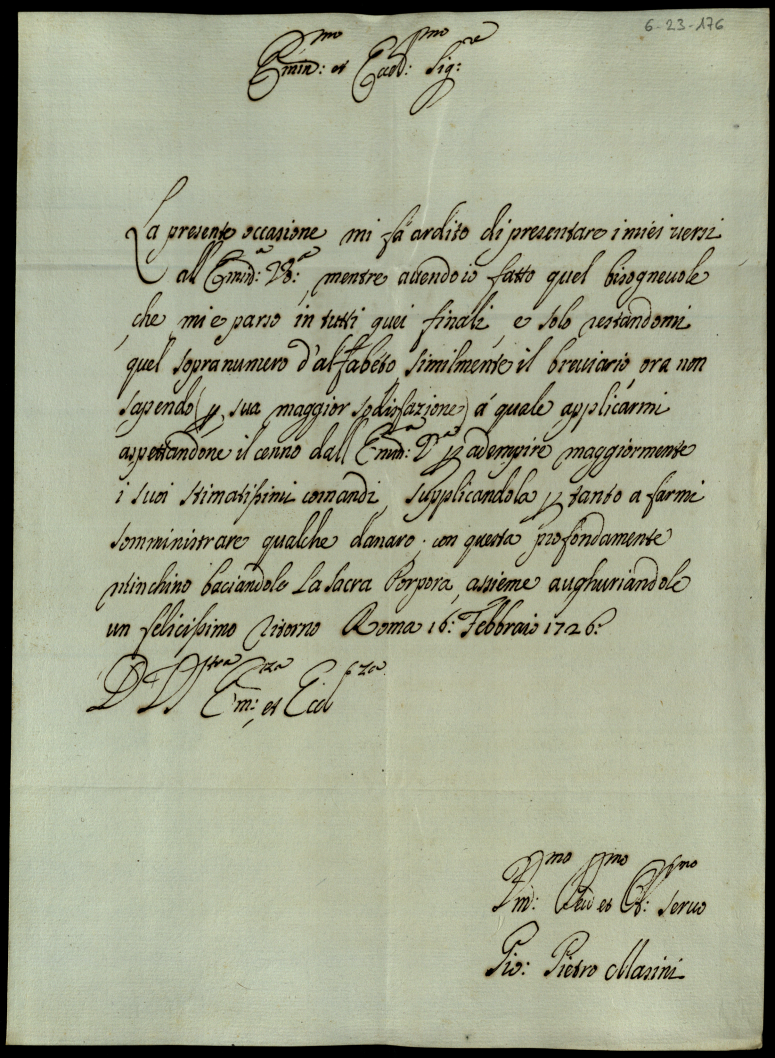 6-23-176
Emin:mo et Ecc:mo Sig:re
La presente occasione mi fà ardito di presentare i miei versi
all Emin:a Vra: mentre avendo io fatto quel bisognevole
che mi e parso in tutti quei finali, e solo restandomi
quel sopranumero d'alfabeto similmente il breviario ora non
sapendo (p sua maggior sodisfazione) á quale applicarmi
aspettandone il cenno dall Emin:a Vra p adempire maggiormente
i suoi stimatissimi comandi, supplicandola p tanto a farmi
somministrare qualche danaro; con questa profondamente
minchino baciandole La Sacra Porpora, assieme aughuriandole
un felicissimo ritorno Roma 16: Febbraio 1726:
D Vstra Em:za et Ecc:za
seruo
Gio: Pietro Masini